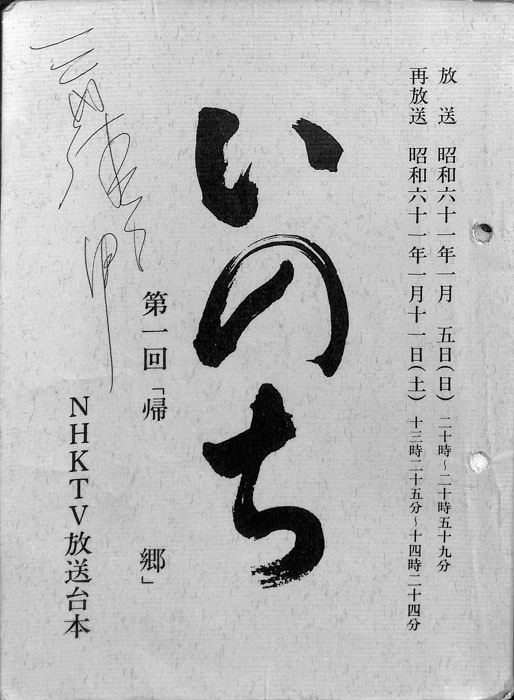 放　送　昭和六十一年一月　五日(日)　二十時～二十時五十九分
再放送　昭和六十一年一月十一日(土)　十三時二十五分～十四時二十四分
いのち
第一回「帰　郷」
NHKTV放送台本